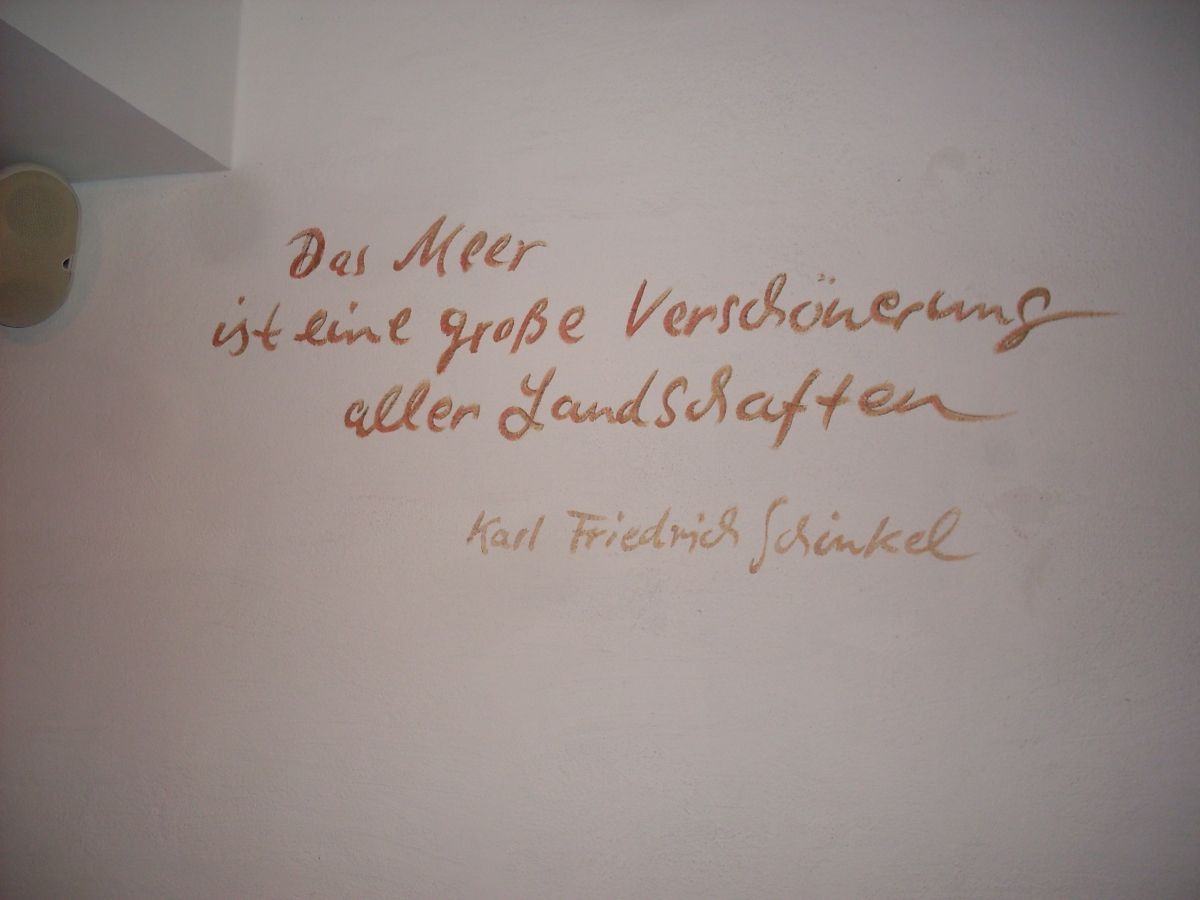 Das Meer
ist eine große Verschönerung
aller Landschaften
Karl Friedrich Schinkel